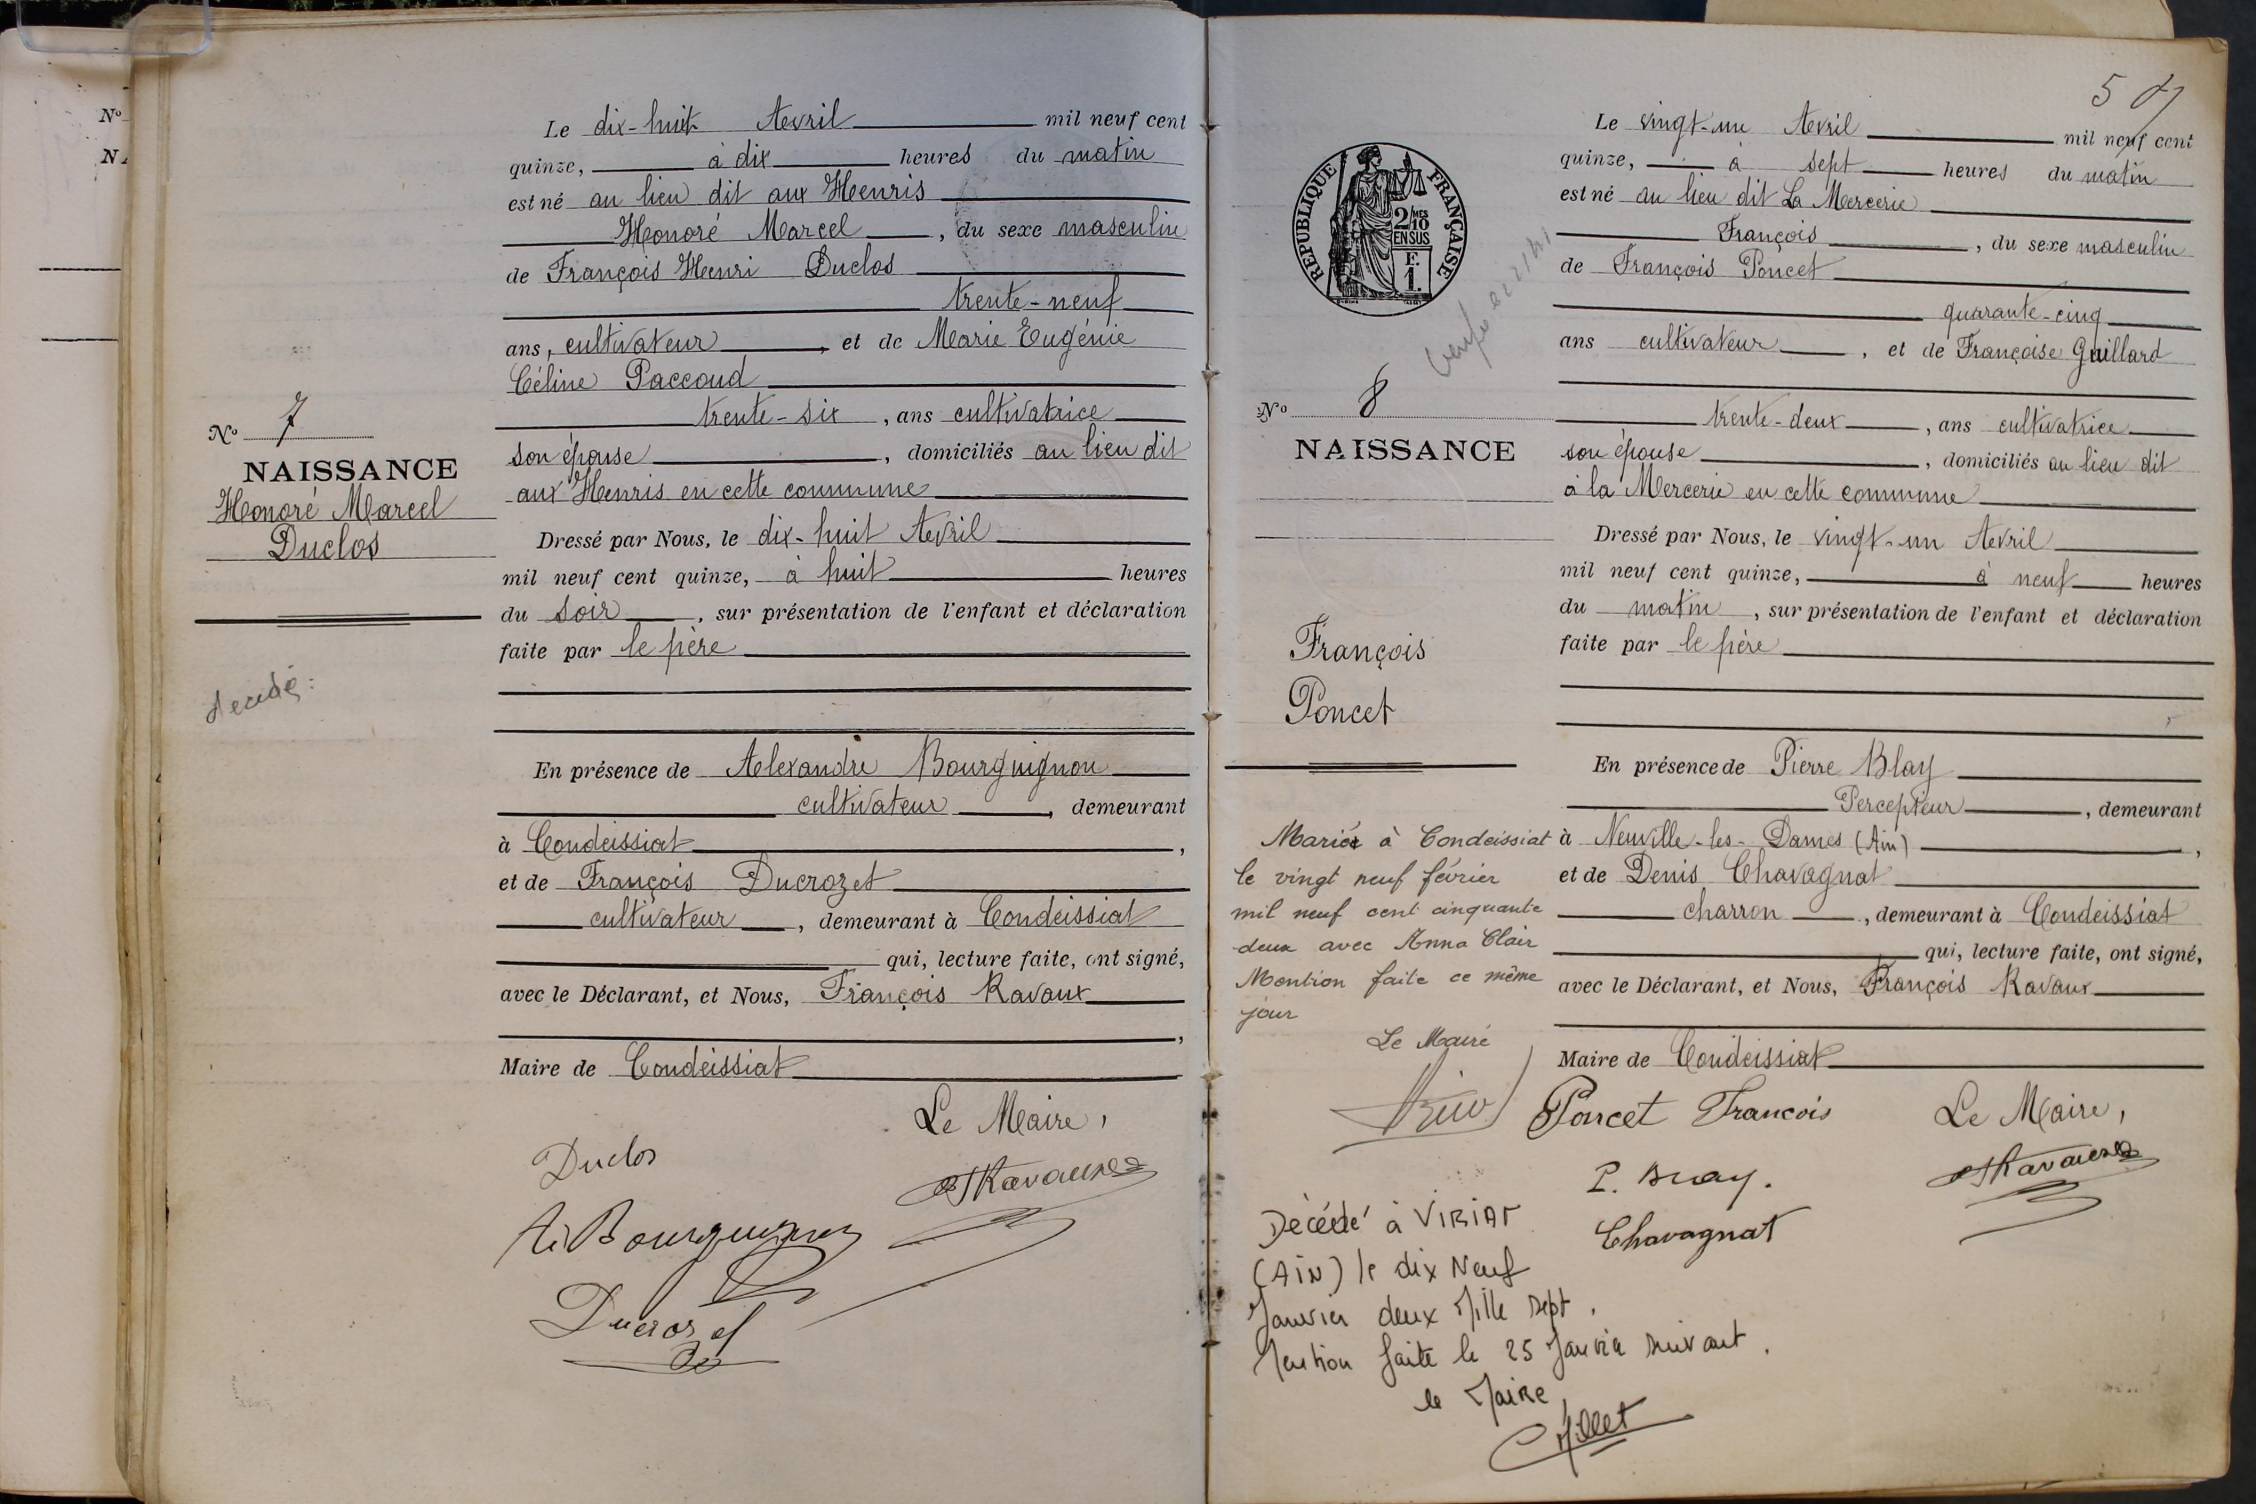 Nº
Le dix-huit Avril mil neuf cent
quinze, à dix heures du matin
est né au lieu dit aux Henris
Honoré Marcel, du sexe masculin
de François Henri Duclos
trente-neuf
ans, cultivateur, et de Marie Eugénie
Céline Paccoud
trente-six, ans cultivatrice
son épouse, domiciliés au lieu dit
aux Henris en cette commune
Nº 7
NAISSANCE
Honoré Marcel
Duclos
décédé:
Dressé par Nous, le dix-huit Avril
mil neuf cent quinze, à huit heures
du soir, sur présentation de l'enfant et déclaration
faite par le père
En présence de Alexandre Bourguignon
cultivateur, demeurant
à Condeissiat,
et de François Ducrozet
cultivateur, demeurant à Condeissiat
qui, lecture faite, ont signé,
avec le Déclarant, et Nous, François Ravaux
,
Maire de Condeissiat
Le Maire,
Duclos
FRavaux
A. Bourguignon
Ducrozet
5
RÉPUBLIQUE FRANÇAISE
2/10MES
EN SUS
F.
1.
Le vingt-un Avril mil neuf cent
quinze, à sept heures du matin
est né au lieu dit La Mercerie
François, du sexe masculin
de François Poncet
quarante-cinq
ans cultivateur, et de Françoise Guillard
trente-deux, ans cultivatrice
son épouse, domiciliés au lieu dit
à la Mercerie en cette commune
Nº 8
NAISSANCE
François
Poncet
Dressé par Nous, le vingt-un Avril
mil neuf cent quinze, à neuf heures
du matin, sur présentation de l'enfant et déclaration
faite par le père
En présence de Pierre Blay
Percepteur, demeurant
à Neuville-les-Dames (Ain),
et de Denis Chavagnat
charron, demeurant à Condeissiat
qui, lecture faite, ont signé,
avec le Déclarant, et Nous, François Ravaux
Maire de Condeissiat
Marié à Condeissiat
le vingt neuf février
mil neuf cent cinquante
deux avec Anna Clair
Mention faite ce même
jour
Le Maire
Poncet Francois
Le Maire,
P. Blay.
FRavaux
Chavagnat
Décédé à VIRIAT
(AIN) le dix Neuf
Janvier deux Mille sept.
Mention faite le 25 Janvier suivant.
le Maire
Millet